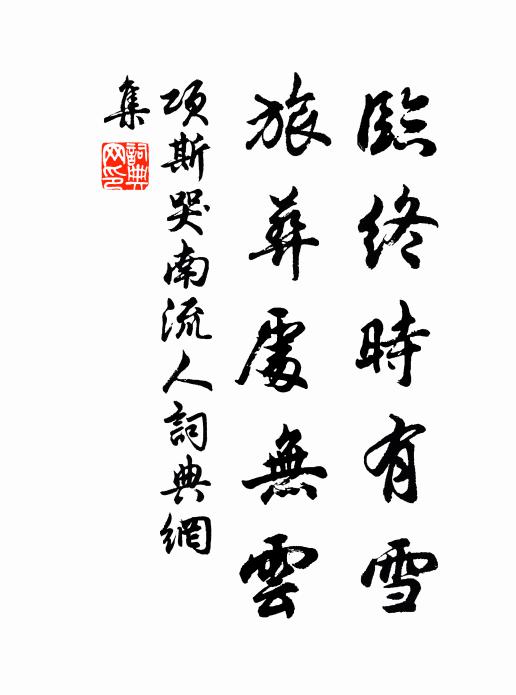 臨終時有雪
旅葬處無雲
項斯哭南流人詞典網
集
詞典
网印